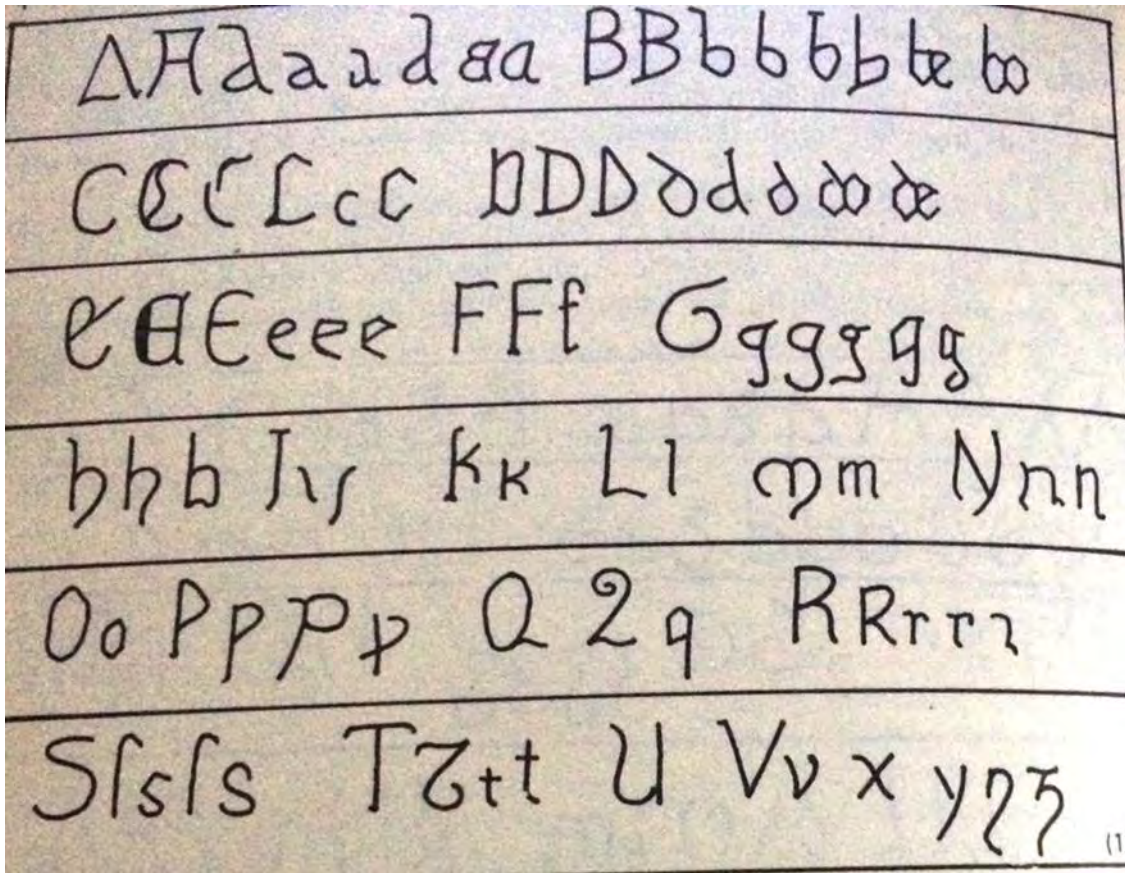 A A a a a a a a B B b b b b be bo
C C C C c c D D D d d d do de
E E E e e e F F f G g g g g g
h h h I ı ſ K k L l m m N n n
O o P p p p Q 2 q R R r r ꝛ
S ſ s ſ s T T t t U V v x y